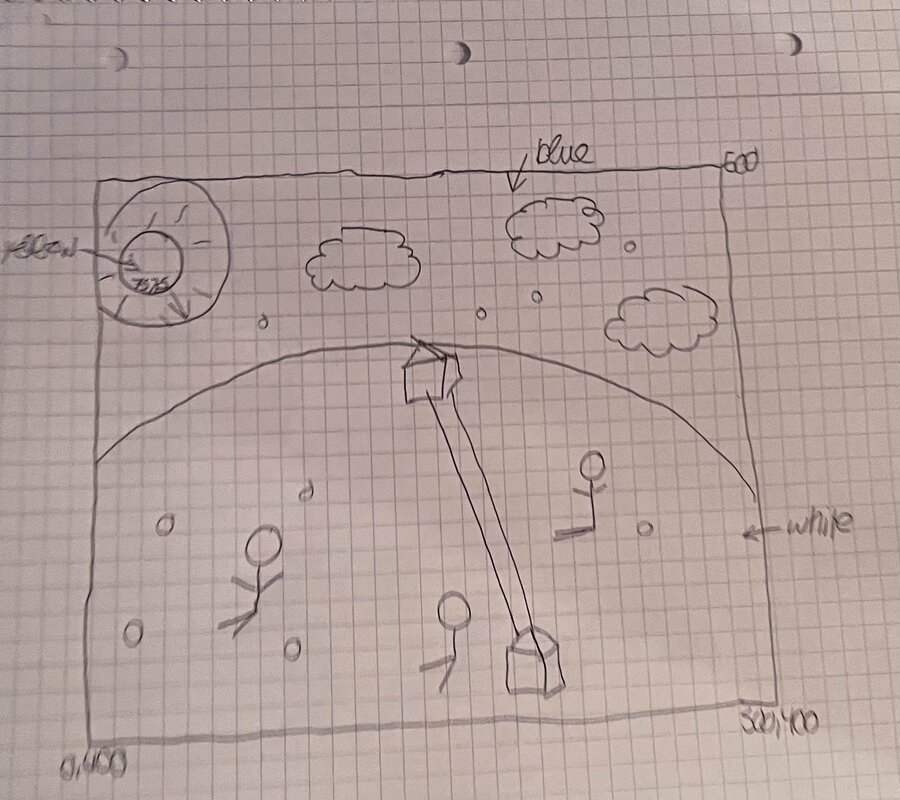 blue
500
yellow
75,75
white
500,400
0,400